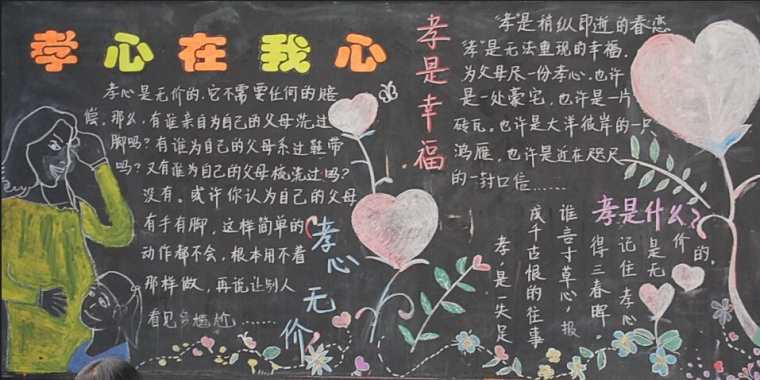 孝心在我心
孝心是无价的,它不需要任何的赔
偿。那么,有谁亲自为自己的父母洗过
脚吗?有谁为自己的父母系过鞋带
吗?又有谁为自己的父母梳洗过吗?
没有。或许你认为自己的父母
有手有脚,这样简单的
动作都不会,根本用不着
那样做,再说让别人
看见多尴尬......
孝心无价
孝是幸福
“孝”是稍纵即逝的眷恋
“孝”是无法重现的幸福.
为父母尽一份孝心,也许
是一处豪宅,也许是一片
砖瓦,也许是大洋彼岸的一只
鸿雁,也许是近在咫尺
的一封口信......
孝是什么?
孝,是一失足
成千古恨的往事
谁言寸草心,报
得三春晖。
记住孝心
是无
价的.